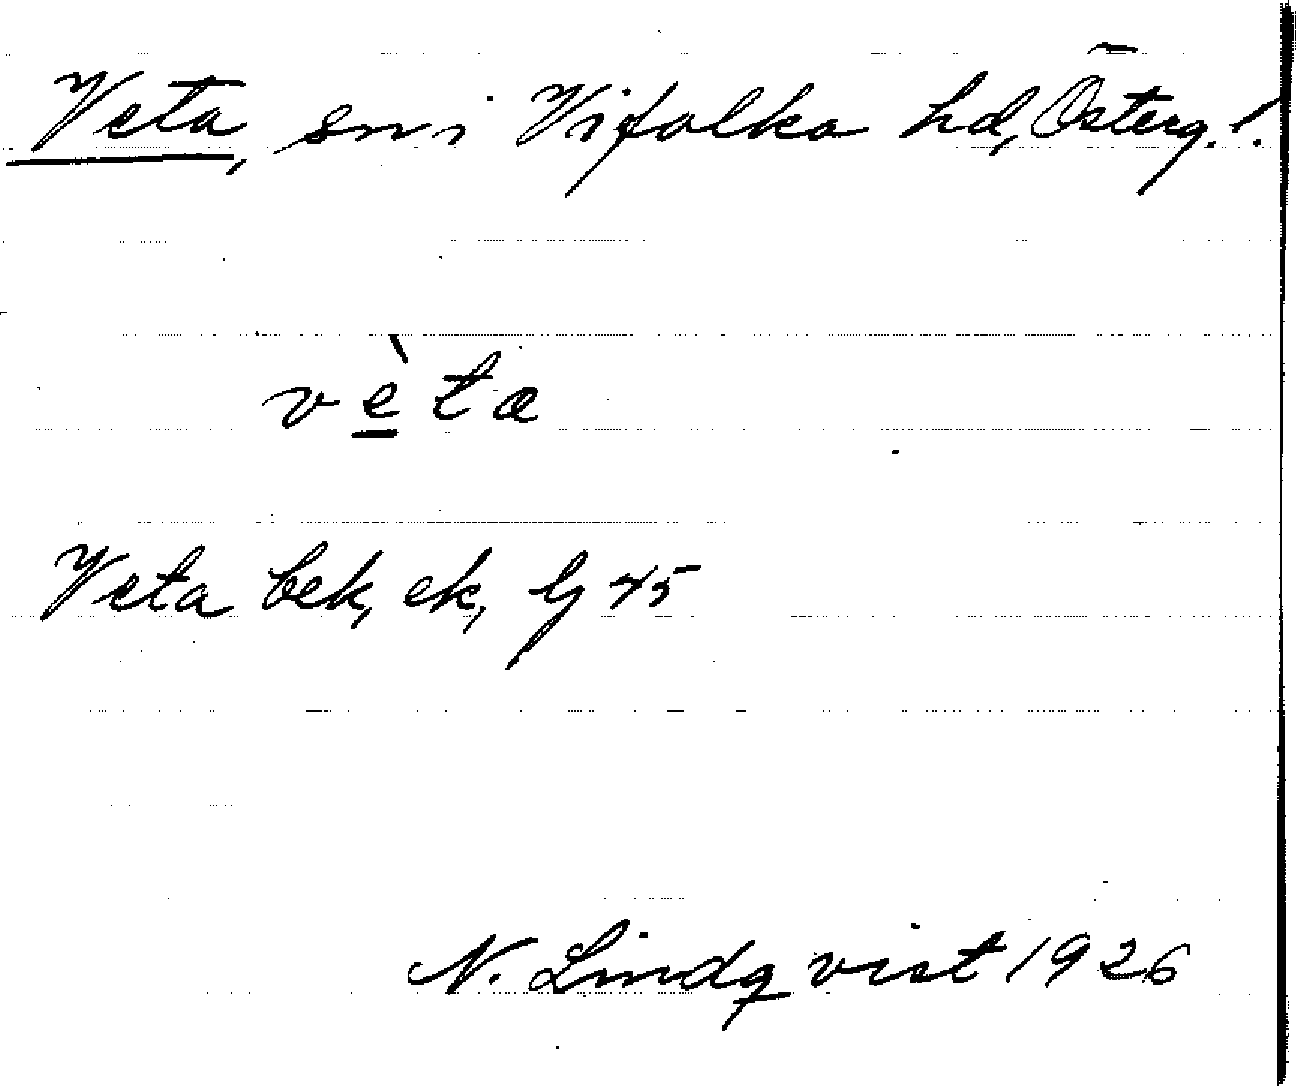 Veta, sn i Vifolka hd, Österg. l.
vèta
Veta bek, ek, lj 45
N. Lindqvist 1926